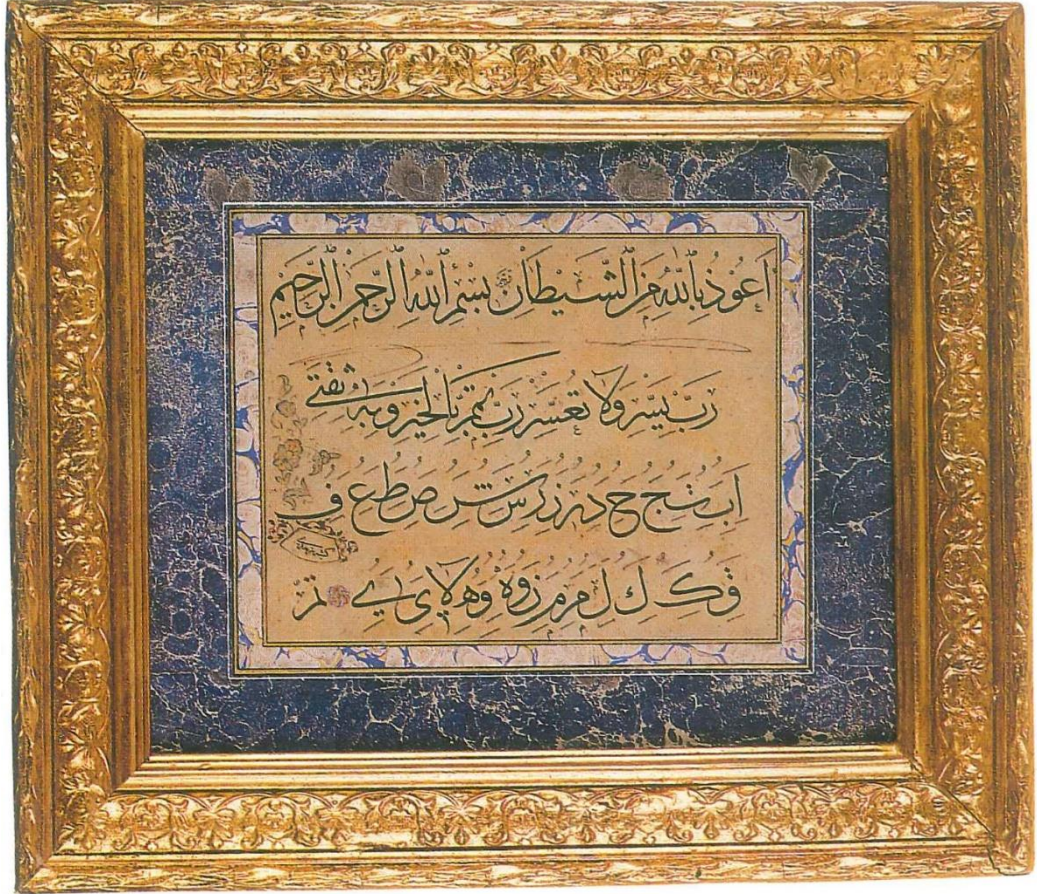 اَعُوذُ بِاللهِ مِنَ الشَّيْطَانِ بِسْمِ اللهِ الرَّحْمٰنِ الرَّحِيْمِ
رَبِّ يَسِّرْ وَلَا تُعَسِّرْ رَبِّ تَمِّمْ بِالْخَيْرِ وَبِهِ ثِقَتِي
ا ب ت ج ح د ر ز س ش ص ط ع ف
ق ك ك ل م م ن و ه و ه لا ى ي تم